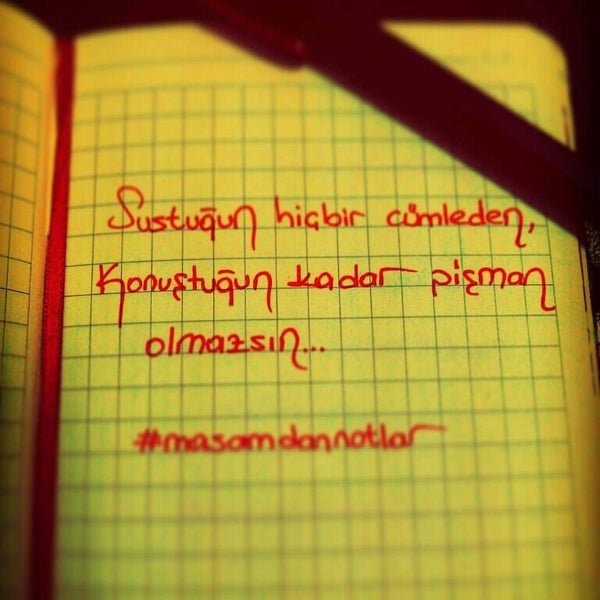 Sustuğun hiçbir cümleden,
Konuştuğun kadar pişman
olmazsın...
#masamdannotlar